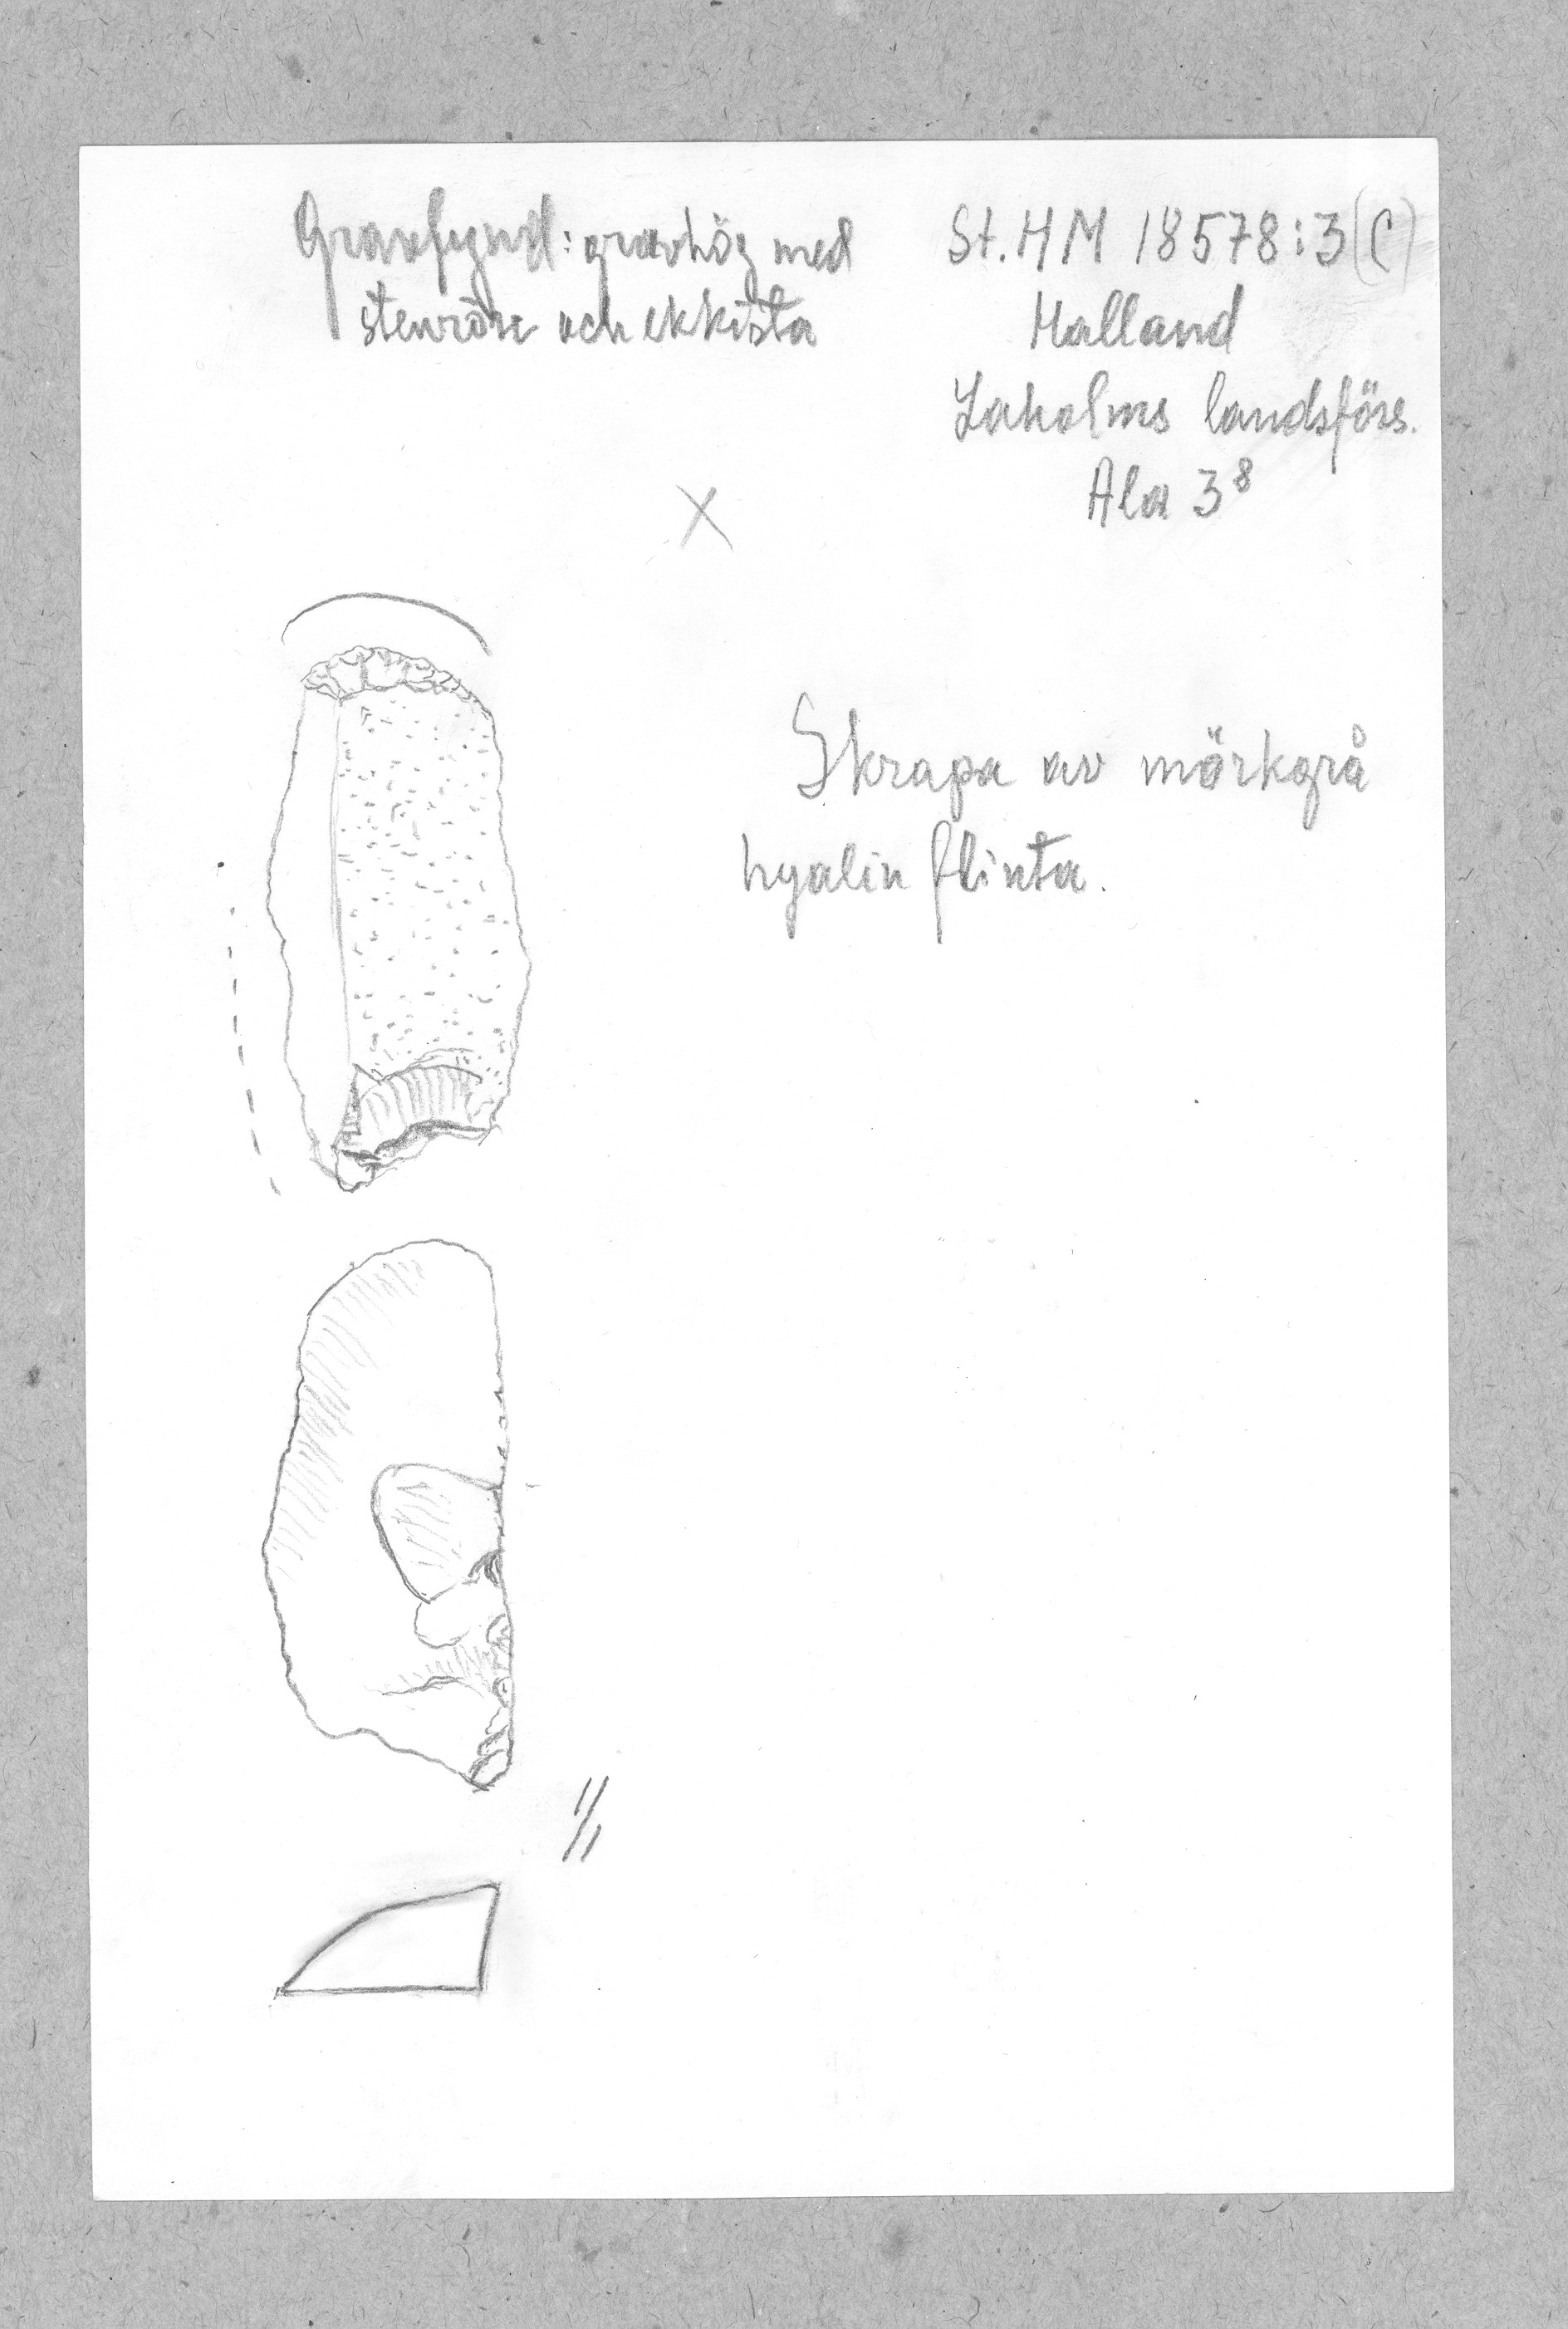 Gravfynd: gravhög med
stenröse och ekkista
St. HM 18578:3(C)
Halland
Laholms landsförs.
Ala 3⁸
X
Skrapa av mörkgrå
hyalin flinta.
1/1